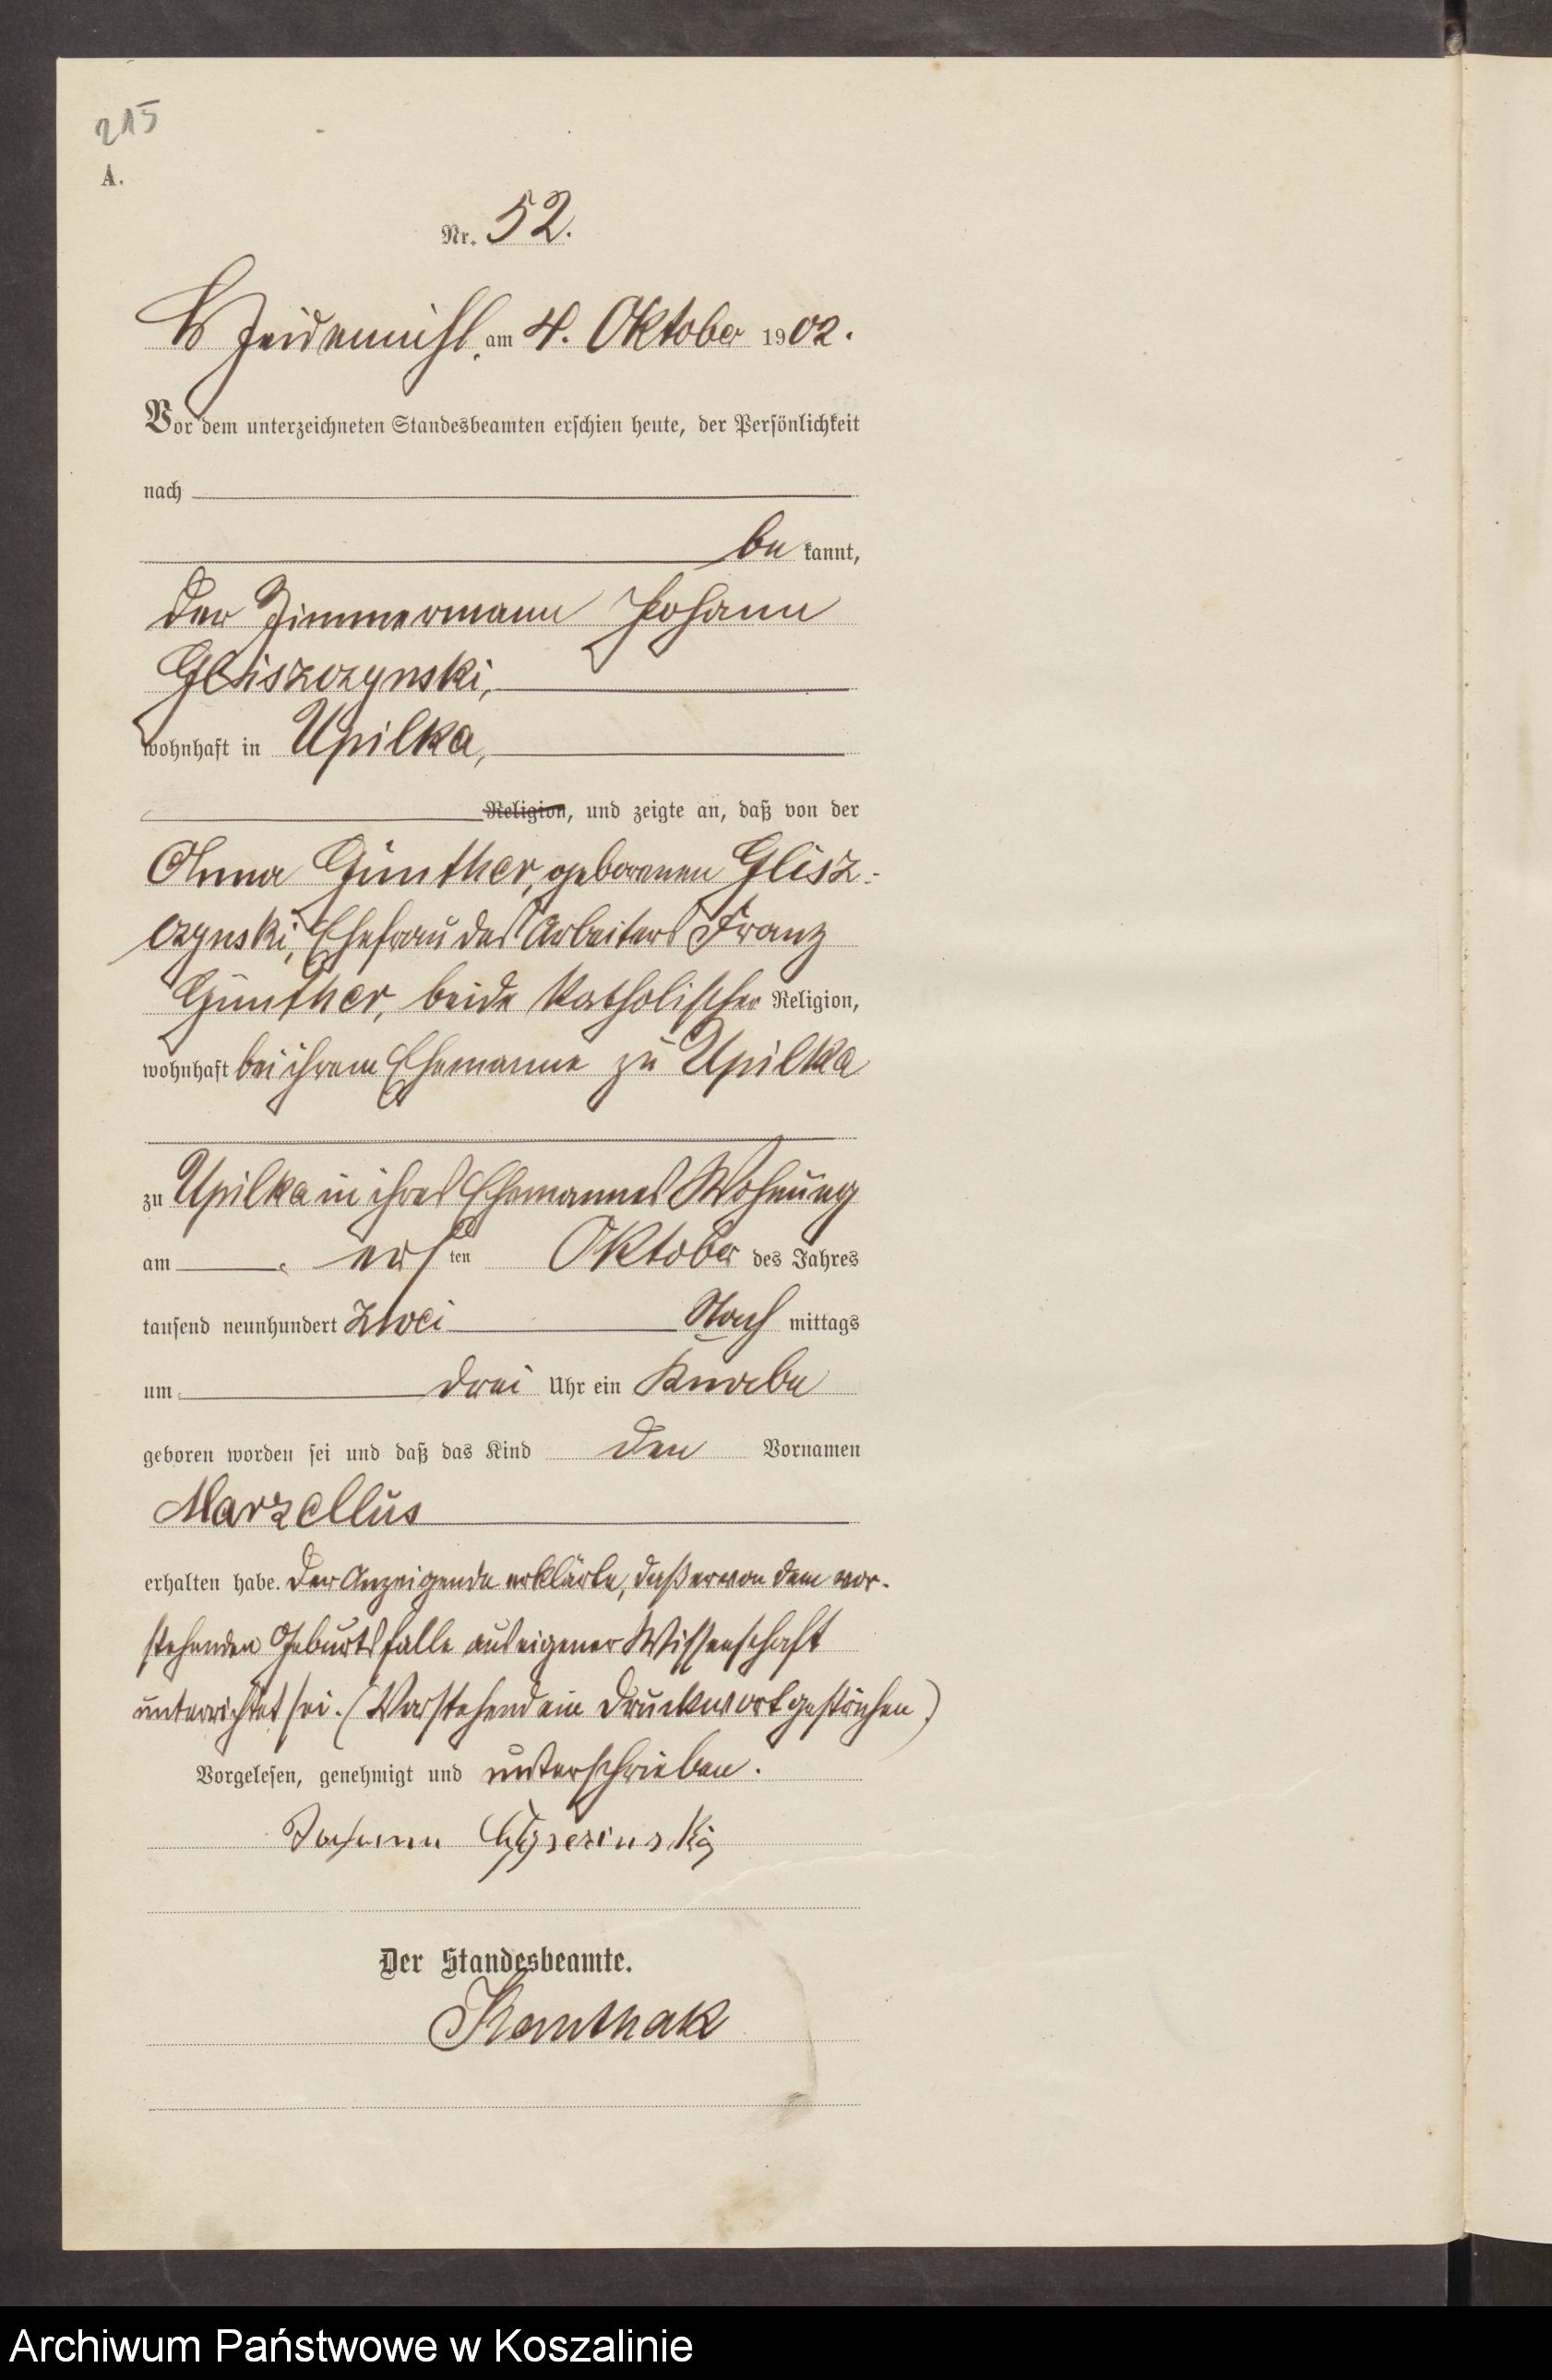 215
A.
Nr. 52.
am 4. Oktober 1902.
Vor dem unterzeichneten Standesbeamten erschien heute, der Persönlichkeit
nach
be kannt,
der Zimmermann Johann
Gliszczynski,
wohnhaft in Upilka,
Religion, und zeigte an, daß von der
Anna Günther, geborenen Glisz-
czynski, Ehefrau des Arbeiters Franz
Günther, beide katholischer Religion,
wohnhaft bei ihrem Ehemanne zu Upilka
zu Upilka in ihres Ehemannes Wohnung
am ersten Oktober des Jahres
tausend neunhundert zwei Nach mittags
um drei Uhr ein Knabe
geboren worden sei und daß das Kind den Vornamen
Marzellus
erhalten habe. Der Anzeigende erklärte, daß er von dem vor-
stehenden Geburtsfalle aus eigener Wissenschaft
unterrichtet sei. (Vorstehend ein Druckwort gestrichen)
Vorgelesen, genehmigt und unterschrieben.
Johann
Der Standesbeamte.
Archiwum Państwowe w Koszalinie